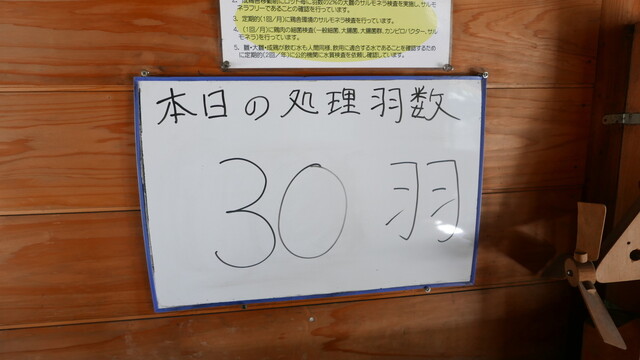 ラフリーであることの確認を行っています。
3. 定期的(1回/月)に鶏舎環境のサルモネラ検査を行っています。
4. (1回/月)に鶏肉の細菌検査(一般細菌、大腸菌、大腸菌群、カンピロバクター、サルモネラ)を行っています。
5. 雛・大雛・成鶏が飲む水も人間同様、飲用に適合する水であることを確認するために定期的(2回/年)に公的機関に水質検査を依頼し確認しています。
本日の処理羽数
30 羽